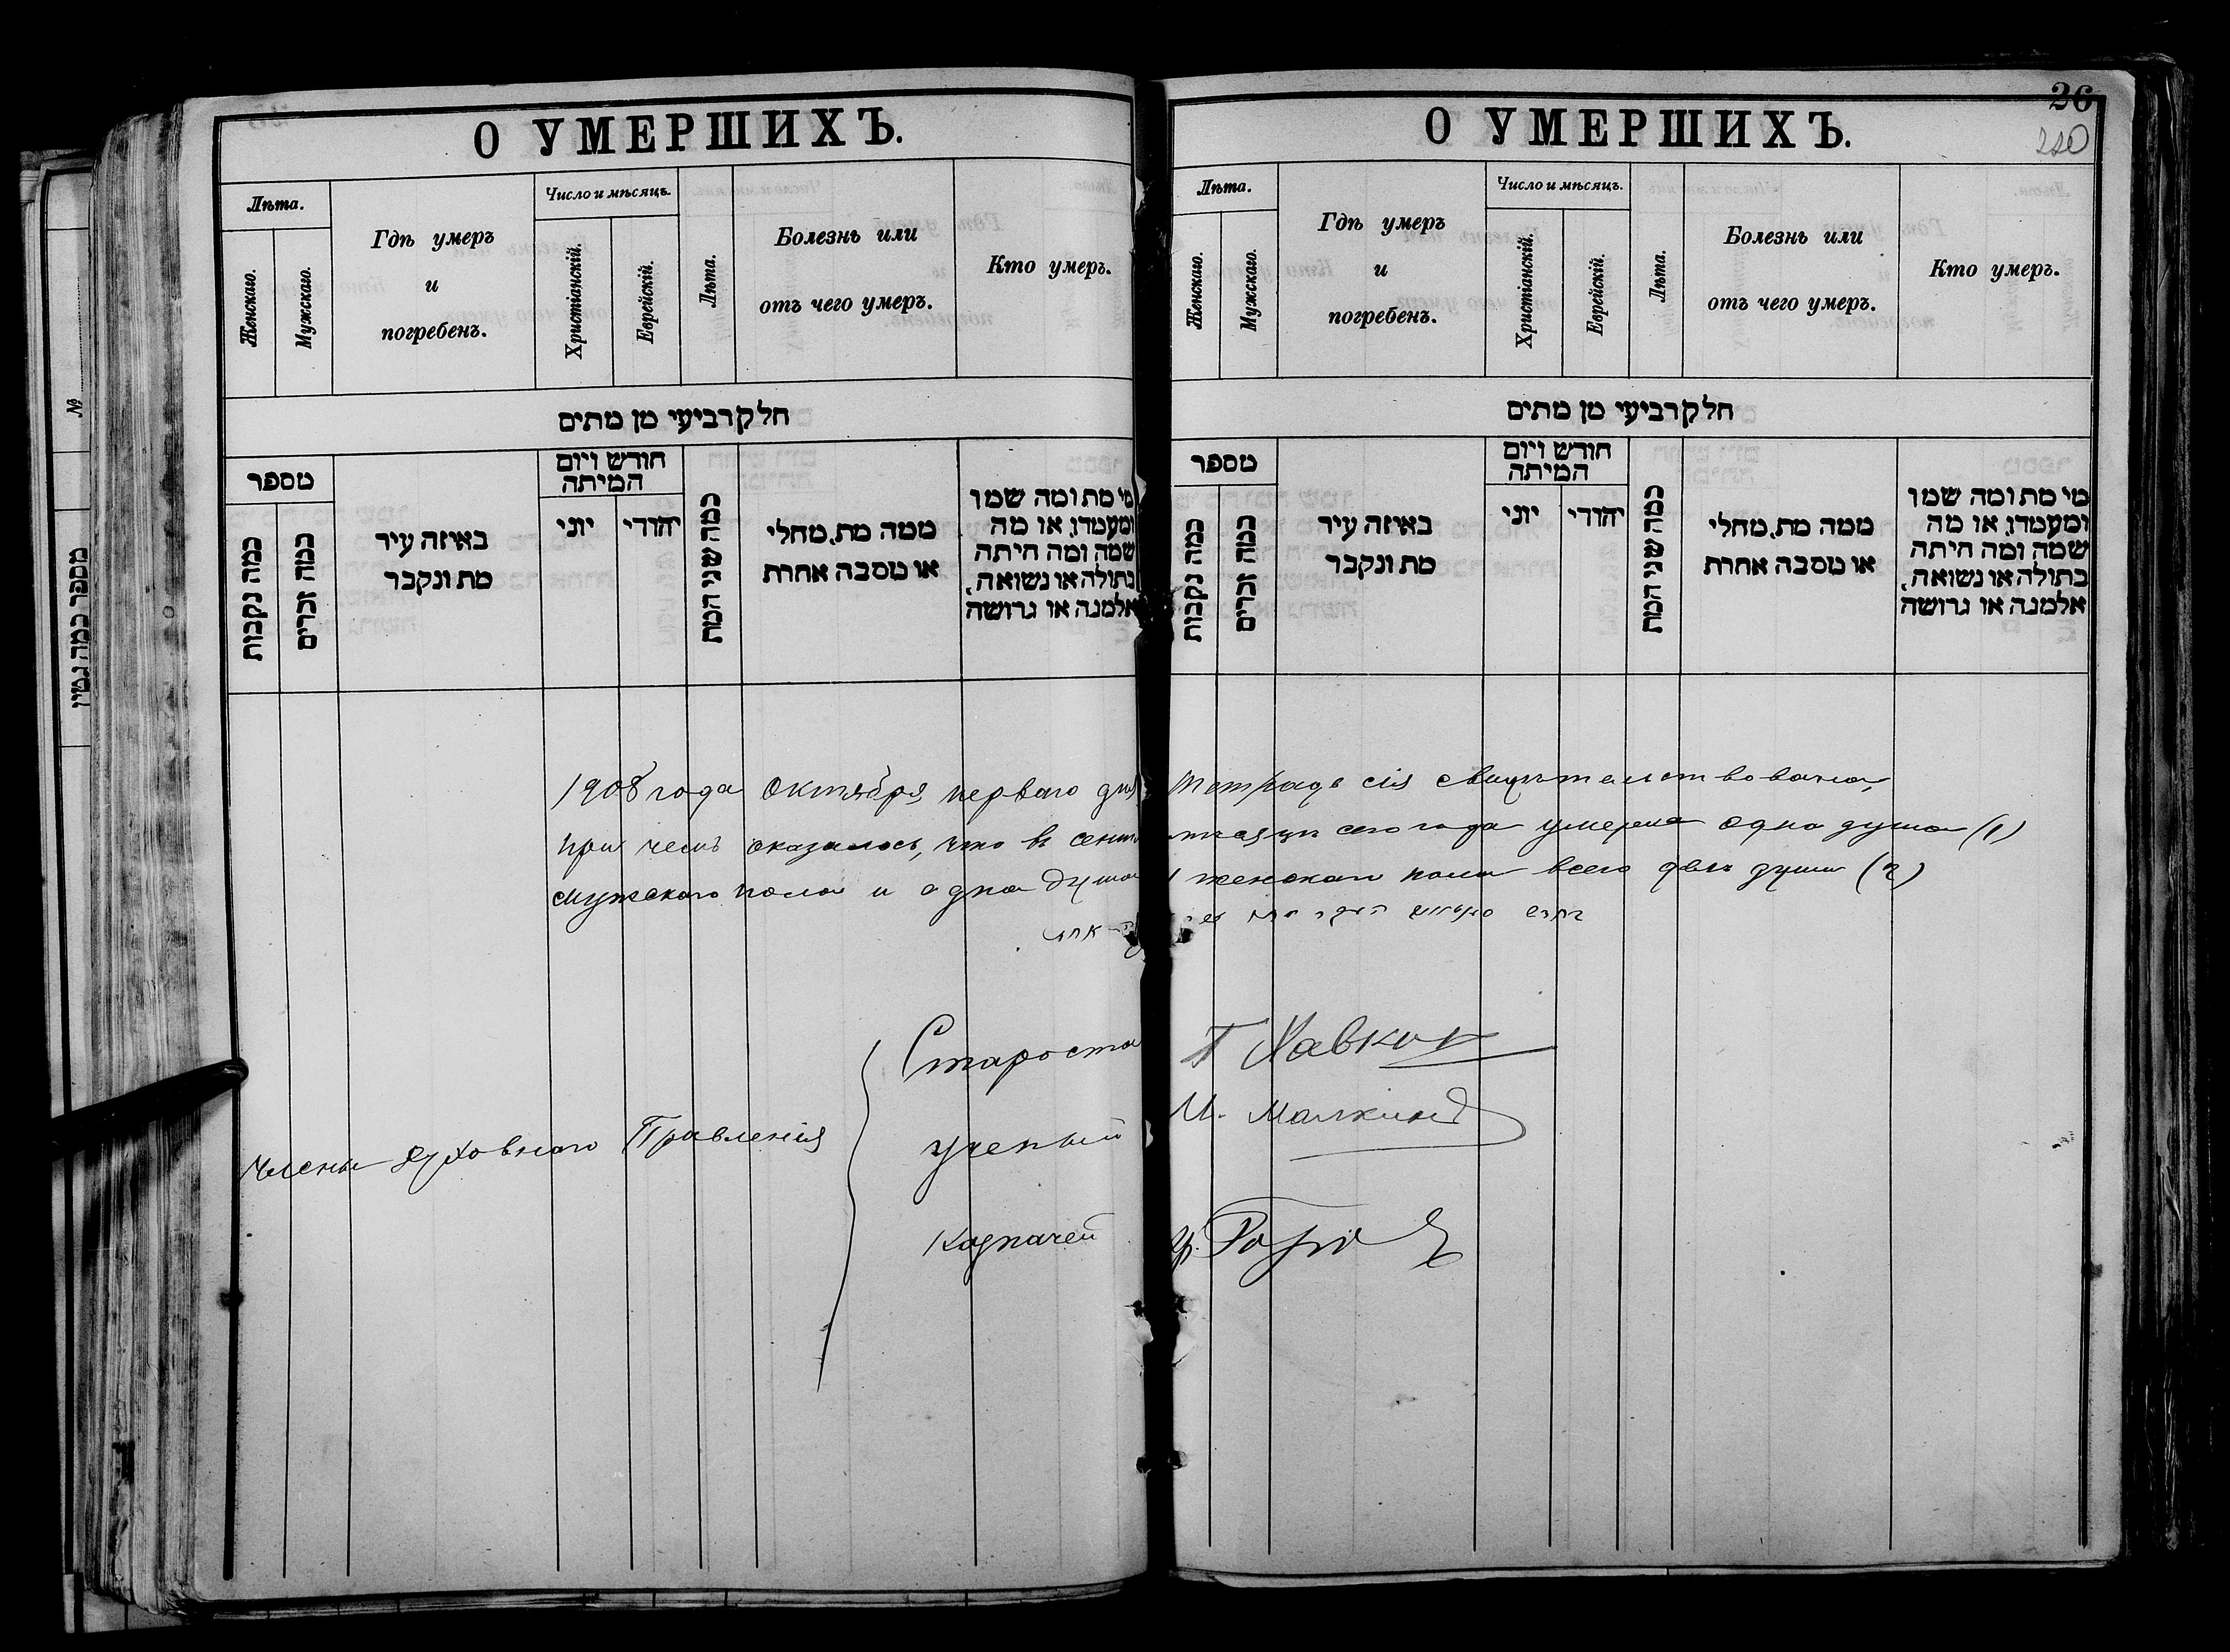 О УМЕРШИХЪ.
Лѣта.
Женскаго.
Мужскаго.
Гдѣ умеръ
и
погребенъ.
Число и мѣсяцъ.
Христіанскій.
Еврейскій.
Лѣта.
Болезнь или
отъ чего умеръ.
Кто умеръ.
חלק רביעי מן מתים
מספר
כמה נקבות
כמה זכרים
באיזה עיר
מת ונקבר
חודש ויום
המיתה
יוני
יהודי
כמה שני המת
ממה מת, מחלי
או מסבה אחרת
מי מת ומה שמו
ומעמדו, או מה
שמה ומה היתה
בתולה או נשואה,
אלמנה או גרושה
№
מספר כמה גטין
26
220
О УМЕРШИХЪ.
Лѣта.
Женскаго.
Мужскаго.
Гдѣ умеръ
и
погребенъ.
Число и мѣсяцъ.
Христіанскій.
Еврейскій.
Лѣта.
Болезнь или
отъ чего умеръ.
Кто умеръ.
חלק רביעי מן מתים
מספר
כמה נקבות
כמה זכרים
באיזה עיר
מת ונקבר
חודש ויום
המיתה
יוני
יהודי
כמה שני המת
ממה מת, מחלי
או מסבה אחרת
מי מת ומה שמו
ומעמדו, או מה
שמה ומה היתה
בתולה או נשואה,
אלמנה או גרושה
1908 года Октября перваго дня Тетрадь сія свидѣтельствована,
при чемъ оказалось, что въ сент мѣсяцѣ сего года умерла одна душа (1)
мужскаго пола и одна душа женскаго пола всего двѣ души (2)
Члены Духовнаго Правленія
Староста Г Хавкин
ученый И. Малкинъ
Казначей